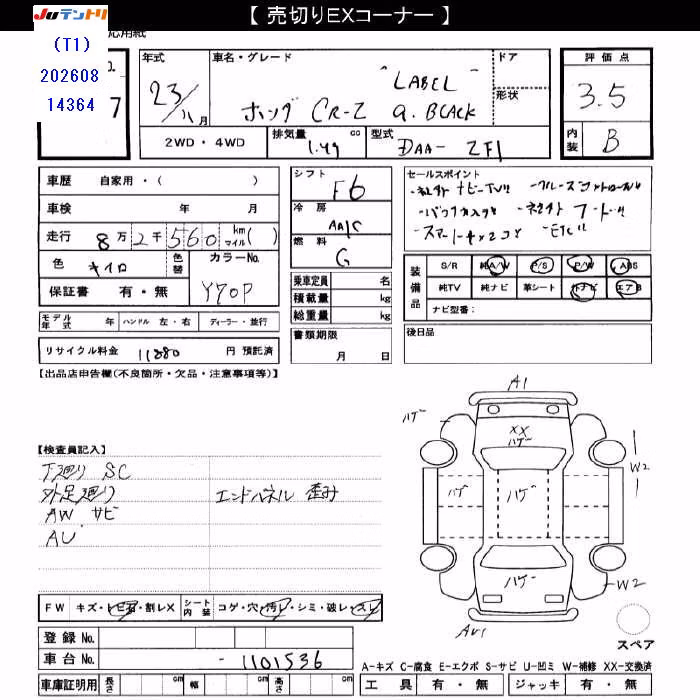 【 売切りEXコーナー 】
JUテントリ
(T1)
202608
14364
応用紙
7
年式
23/八月
車名・グレード
" LABEL "
ホンダ CR-Z α. BLACK
ドア
形状
評価点
3.5
内装
B
2WD・4WD
排気量
1.49 cc
型式
DAA- ZF1
車歴 自家用・( )
車検 年 月
走行 8万2千560 km マイル( )
色 キイロ 色替
カラーNo.
Y70P
保証書 有・無
モデル年式 年 ハンドル 左・右 ディーラー・並行
リサイクル料金 11880 円 預託済
シフト
F6
冷房
AA/C
燃料
G
乗車定員 名
積載量 kg
総重量 kg
書類期限
月 日
セールスポイント
・社外ナビTV!! ・クルーズコントロール!!
・バックカメラ!!
・スマートキーx2コ ・ETC!!
装備品
S/R 純A/W P/S P/W ABS
純TV 純ナビ 革シート 外ナビ エアB
ナビ型番：
後日品
【出品店申告欄(不良箇所・欠品・注意事項等)】
【検査員記入】
下廻り SC
外足廻り
AW サビ
AU
エンドパネル 歪み
A1
ハゲー
XX
ハゲー
W2
ハゲ
ハゲー
ハゲー
W2
AU1
スペア
FW キズ・トビ石・割レX
シート内装 コゲ・穴・汚レ・シミ・破レ・スレ
登録 No.
車台 No. -1101536
車庫証明用 長さ cm 幅 cm 高さ cm
A-キズ C-腐食 E-エクボ S-サビ U-凹ミ W-補修 XX-交換済
工具 有・無 ジャッキ 有・無